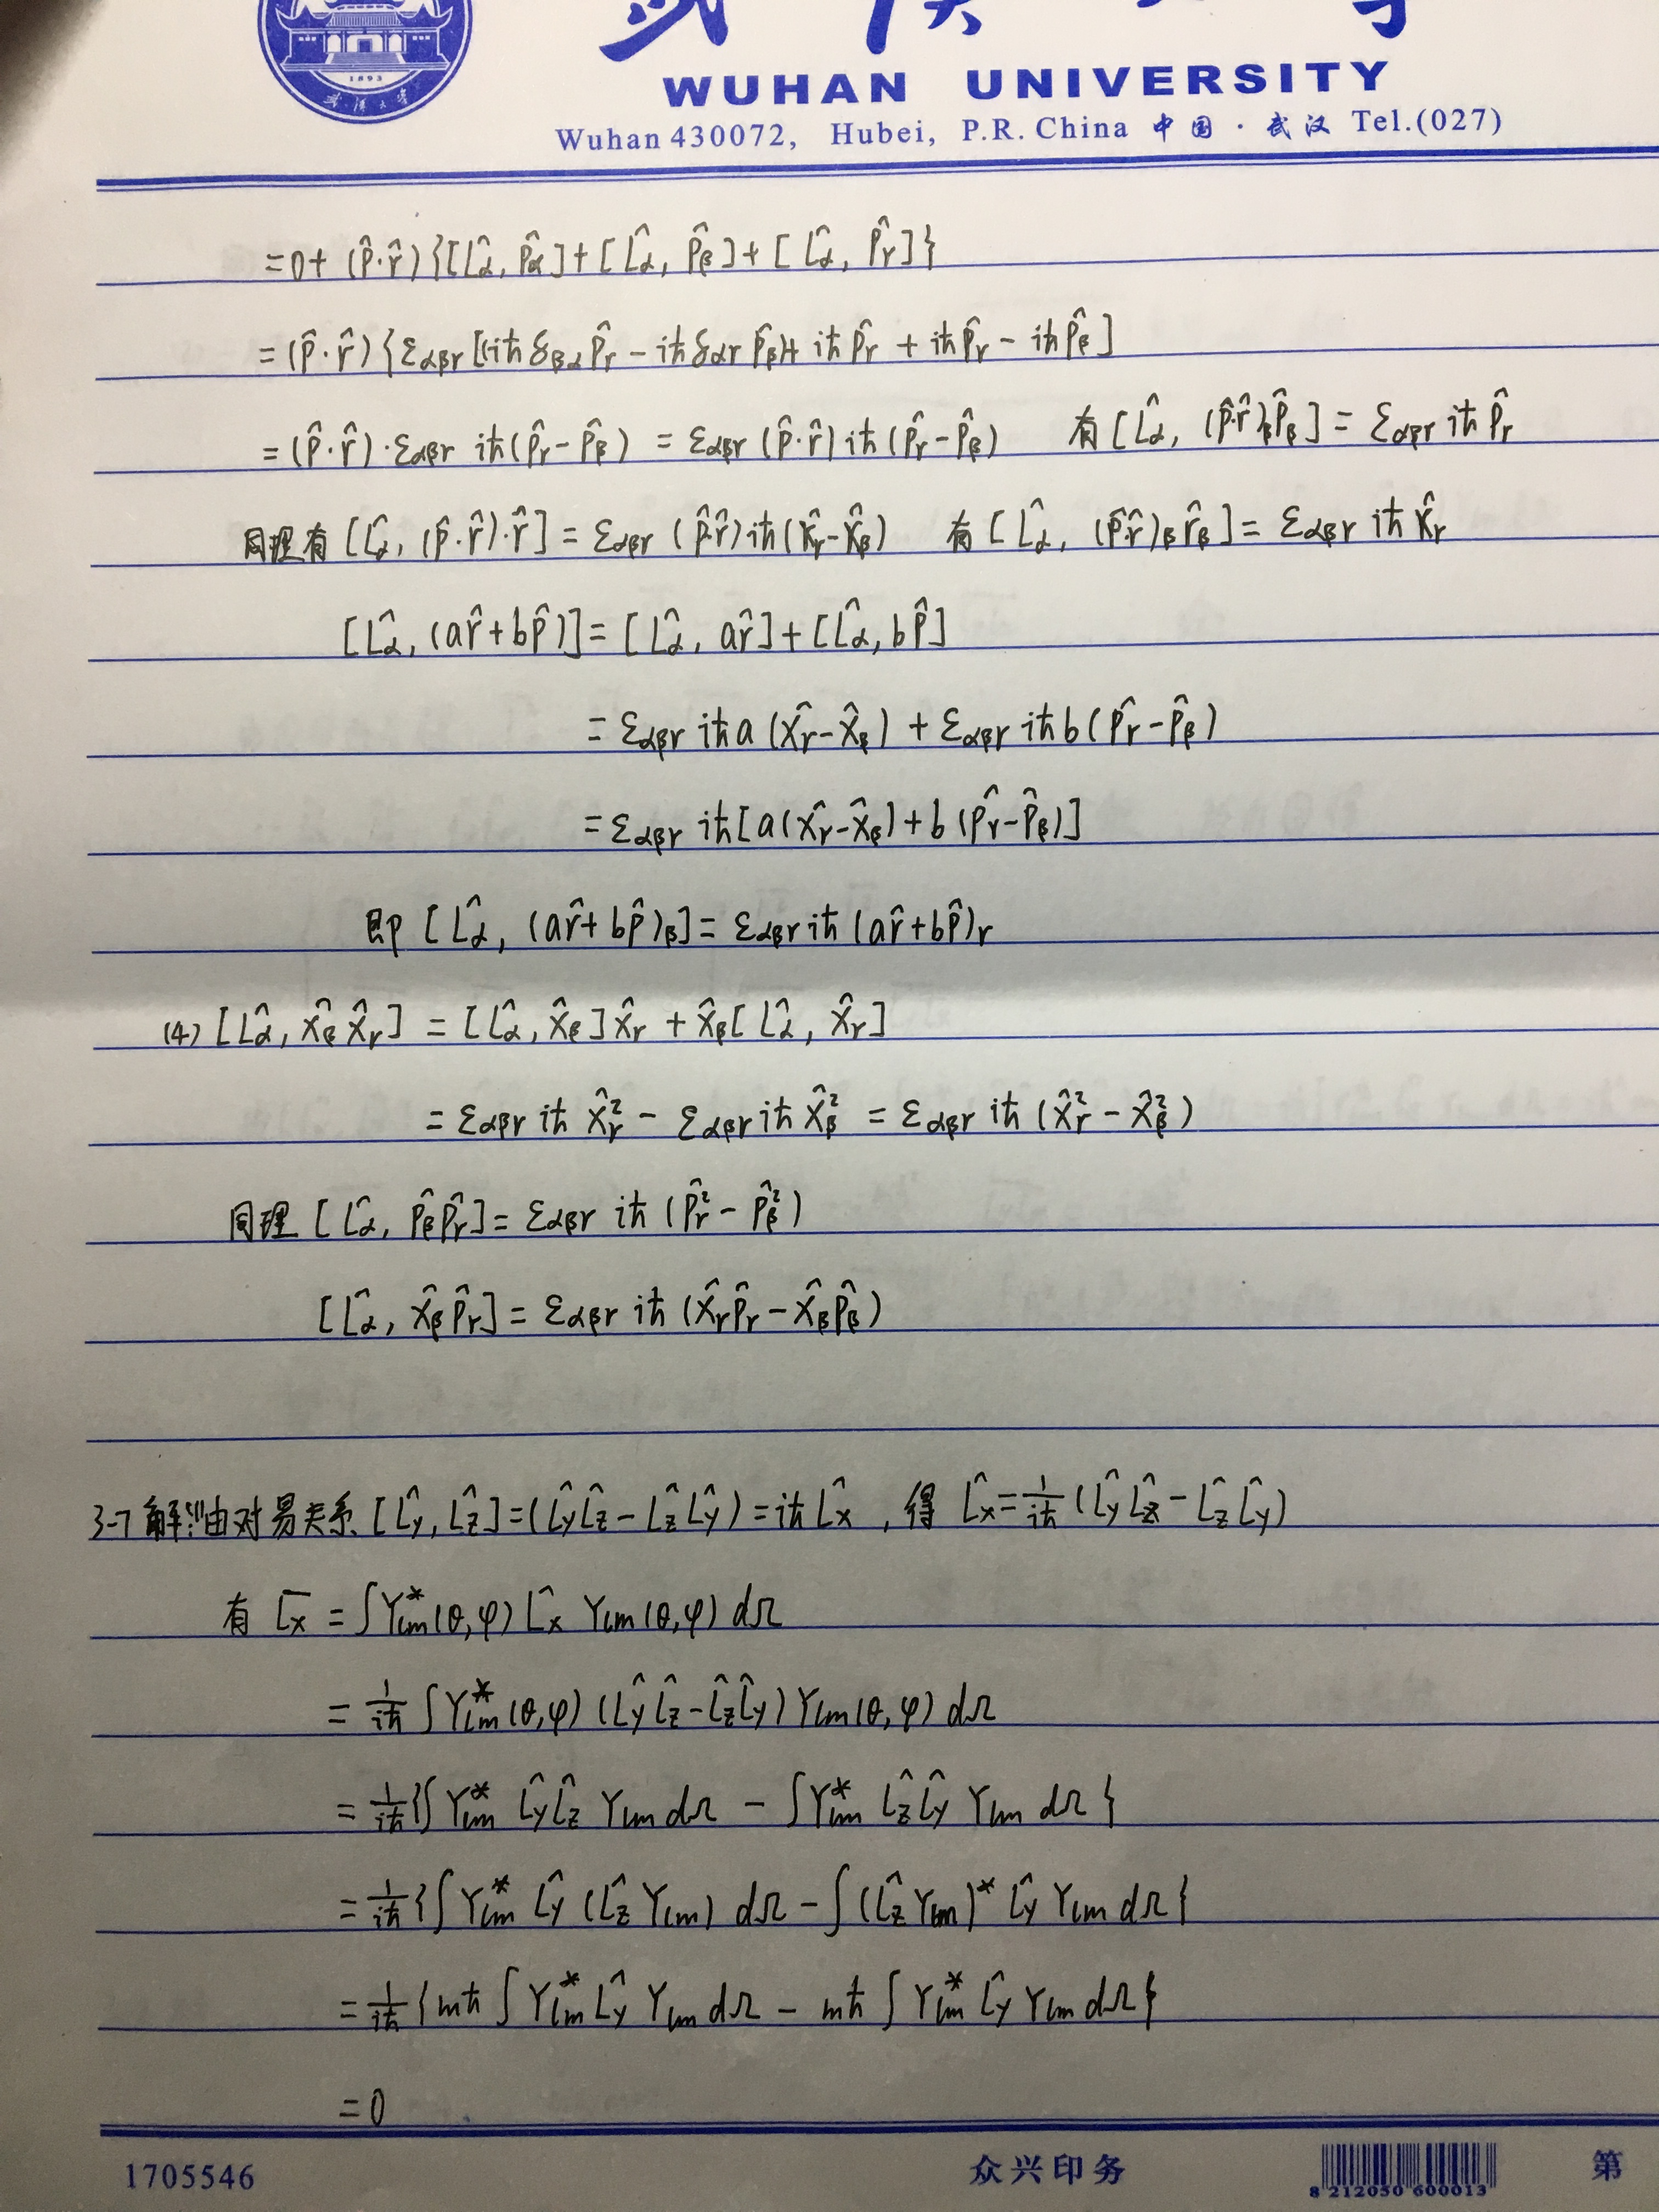 1893
WUHAN UNIVERSITY
Wuhan 430072, Hubei, P.R. China 中国·武汉 Tel.(027)
=0+ (p̂·r̂){[L̂α, p̂α]+[L̂α, p̂β]+[L̂α, p̂γ]}
=(p̂·r̂){εαβγ[(iħδβαp̂γ − iħδαγp̂β)+ iħp̂γ + iħp̂γ − iħp̂β]
=(p̂·r̂)·εαβγ iħ(p̂γ−p̂β) = εαβγ(p̂·r̂)iħ(p̂γ−p̂β) 有[L̂α, (p̂·r̂)βp̂β]= εαβγ iħp̂γ
同理有[L̂α, (p̂·r̂)·r̂]= εαβγ(p̂r̂)iħ(x̂γ−x̂β) 有[L̂α, (p̂r̂)βr̂β]= εαβγ iħx̂γ
[L̂α, (ar̂+bp̂)]=[L̂α, ar̂]+[L̂α, bp̂]
= εαβγ iħa(x̂γ−x̂β) + εαβγ iħb(p̂γ−p̂β)
=εαβγ iħ[a(x̂γ−x̂β)+b(p̂γ−p̂β)]
即[L̂α, (ar̂+bp̂)β]= εαβγiħ(ar̂+bp̂)γ
(4)[L̂α, x̂βx̂γ] = [L̂α, x̂β]x̂γ + x̂β[L̂α, x̂γ]
= εαβγ iħ x̂γ² − εαβγiħ x̂β² = εαβγ iħ(x̂γ² − x̂β²)
同理[L̂α, p̂βp̂γ]= εαβγ iħ(p̂γ² − p̂β²)
[L̂α, x̂βp̂γ]= εαβγ iħ(x̂γp̂γ−x̂βp̂β)
3-7解:(1)由对易关系[L̂y, L̂z]=(L̂yL̂z−L̂zL̂y)=iħL̂x ,得 L̂x=1/iħ(L̂yL̂z−L̂zL̂y)
有 L̄x = ∫Y*lm(θ,φ) L̂x Ylm(θ,φ) dΩ
= 1/iħ ∫Y*lm(θ,φ)(L̂yL̂z−L̂zL̂y)Ylm(θ,φ) dΩ
= 1/iħ{∫Y*lm L̂yL̂z Ylm dΩ − ∫Y*lm L̂zL̂y Ylm dΩ}
= 1/iħ{∫Y*lm L̂y(L̂z Ylm) dΩ − ∫(L̂z Ylm)* L̂y Ylm dΩ}
= 1/iħ{mħ∫Y*lm L̂y Ylm dΩ − mħ∫Y*lm L̂y Ylm dΩ}
=0
1705546 众兴印务 8 212050 600013 第